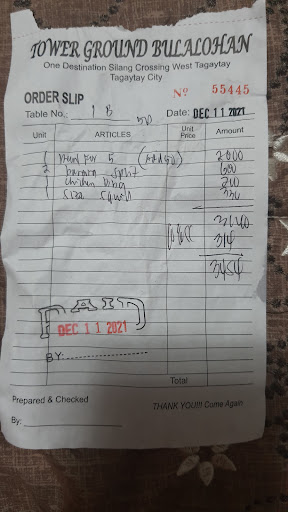 TOWER GROUND BULALOHAN
One Destination Silang Crossing West Tagaytay
Tagaytay City
ORDER SLIP
Nº 55445
Table No.: 1 B
Date: DEC 11 2021
Unit ARTICLES Unit Price Amount
1 for 5 2000
2 banana split 600
1 chicken
1 squid
10% 314
3454
PAID
DEC 11 2021
BY:
Total
Prepared & Checked
THANK YOU!!! Come Again
By: